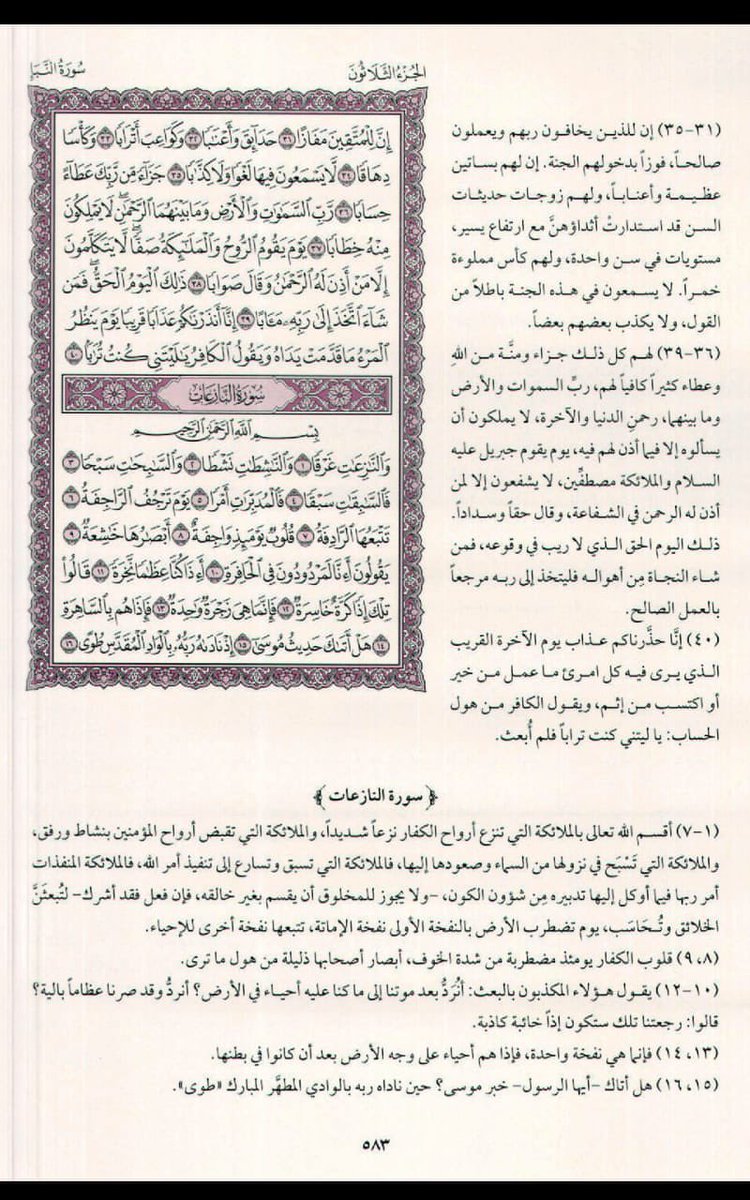 الجزء الثلاثون
سورة النبأ
إِنَّ لِلْمُتَّقِينَ مَفَازًا ٣١ حَدَآئِقَ وَأَعْنَٰبًا ٣٢ وَكَوَاعِبَ أَتْرَابًا ٣٣ وَكَأْسًا
دِهَاقًا ٣٤ لَّا يَسْمَعُونَ فِيهَا لَغْوًا وَلَا كِذَّٰبًا ٣٥ جَزَآءً مِّن رَّبِّكَ عَطَآءً
حِسَابًا ٣٦ رَّبِّ ٱلسَّمَٰوَٰتِ وَٱلْأَرْضِ وَمَا بَيْنَهُمَا ٱلرَّحْمَٰنِ لَا يَمْلِكُونَ
مِنْهُ خِطَابًا ٣٧ يَوْمَ يَقُومُ ٱلرُّوحُ وَٱلْمَلَٰٓئِكَةُ صَفًّا لَّا يَتَكَلَّمُونَ
إِلَّا مَنْ أَذِنَ لَهُ ٱلرَّحْمَٰنُ وَقَالَ صَوَابًا ٣٨ ذَٰلِكَ ٱلْيَوْمُ ٱلْحَقُّ فَمَن
شَآءَ ٱتَّخَذَ إِلَىٰ رَبِّهِۦ مَـَٔابًا ٣٩ إِنَّآ أَنذَرْنَٰكُمْ عَذَابًا قَرِيبًا يَوْمَ يَنظُرُ
ٱلْمَرْءُ مَا قَدَّمَتْ يَدَاهُ وَيَقُولُ ٱلْكَافِرُ يَٰلَيْتَنِى كُنتُ تُرَٰبًۢا ٤٠
سورة النازعات
بِسْمِ ٱللَّهِ ٱلرَّحْمَٰنِ ٱلرَّحِيمِ
وَٱلنَّٰزِعَٰتِ غَرْقًا ١ وَٱلنَّٰشِطَٰتِ نَشْطًا ٢ وَٱلسَّٰبِحَٰتِ سَبْحًا ٣
فَٱلسَّٰبِقَٰتِ سَبْقًا ٤ فَٱلْمُدَبِّرَٰتِ أَمْرًا ٥ يَوْمَ تَرْجُفُ ٱلرَّاجِفَةُ ٦
تَتْبَعُهَا ٱلرَّادِفَةُ ٧ قُلُوبٌ يَوْمَئِذٍ وَاجِفَةٌ ٨ أَبْصَٰرُهَا خَٰشِعَةٌ ٩
يَقُولُونَ أَءِنَّا لَمَرْدُودُونَ فِى ٱلْحَافِرَةِ ١٠ أَءِذَا كُنَّا عِظَٰمًا نَّخِرَةً ١١ قَالُوا۟
تِلْكَ إِذًا كَرَّةٌ خَاسِرَةٌ ١٢ فَإِنَّمَا هِىَ زَجْرَةٌ وَٰحِدَةٌ ١٣ فَإِذَا هُم بِٱلسَّاهِرَةِ
١٤ هَلْ أَتَىٰكَ حَدِيثُ مُوسَىٰٓ ١٥ إِذْ نَادَىٰهُ رَبُّهُۥ بِٱلْوَادِ ٱلْمُقَدَّسِ طُوًى ١٦
(٣١-٣٥) إن للذين يخافون ربهم ويعملون
صالحاً، فوزاً بدخولهم الجنة. إن لهم بساتين
عظيمة وأعناباً، ولهم زوجات حديثات
السن قد استدارتْ أثداؤهنَّ مع ارتفاع يسير،
مستويات في سن واحدة، ولهم كأس مملوءة
خمراً. لا يسمعون في هذه الجنة باطلاً من
القول، ولا يكذب بعضهم بعضاً.
(٣٦-٣٩) لهم كل ذلك جزاء ومنَّة من اللهِ
وعطاء كثيراً كافياً لهم، ربِّ السموات والأرض
وما بينهما، رحمنِ الدنيا والآخرة، لا يملكون أن
يسألوه إلا فيما أذن لهم فيه، يوم يقوم جبريل عليه
السلام والملائكة مصطفِّين، لا يشفعون إلا لمن
أذن له الرحمن في الشفاعة، وقال حقاً وسداداً.
ذلك اليوم الحق الذي لا ريب في وقوعه، فمن
شاء النجاة مِن أهواله فليتخذ إلى ربه مرجعاً
بالعمل الصالح.
(٤٠) إنَّا حذَّرناكم عذاب يوم الآخرة القريب
الذي يرى فيه كل امرئ ما عمل من خير
أو اكتسب من إثم، ويقول الكافر من هول
الحساب: يا ليتني كنت تراباً فلم أُبعث.
﴿ سورة النازعات ﴾
(١-٧) أقسم الله تعالى بالملائكة التي تنزع أرواح الكفار نزعاً شديداً، والملائكة التي تقبض أرواح المؤمنين بنشاط ورفق،
والملائكة التي تَسْبَح في نزولها من السماء وصعودها إليها، فالملائكة التي تسبق وتسارع إلى تنفيذ أمر الله، فالملائكة المنفذات
أمر ربها فيما أوكل إليها تدبيره مِن شؤون الكون، -ولا يجوز للمخلوق أن يقسم بغير خالقه، فإن فعل فقد أشرك- لتُبعثَنَّ
الخلائق وتُحَاسَب، يوم تضطرب الأرض بالنفخة الأولى نفخة الإماتة، تتبعها نفخة أخرى للإحياء.
(٨، ٩) قلوب الكفار يومئذ مضطربة من شدة الخوف، أبصار أصحابها ذليلة من هول ما ترى.
(١٠-١٢) يقول هؤلاء المكذبون بالبعث: أنُرَدُّ بعد موتنا إلى ما كنا عليه أحياء في الأرض؟ أنردُّ وقد صرنا عظاماً بالية؟
قالوا: رجعتنا تلك ستكون إذاً خائبة كاذبة.
(١٣، ١٤) فإنما هي نفخة واحدة، فإذا هم أحياء على وجه الأرض بعد أن كانوا في بطنها.
(١٥، ١٦) هل أتاك -أيها الرسول- خبر موسى؟ حين ناداه ربه بالوادي المطهَّر المبارك «طوى».
٥٨٣